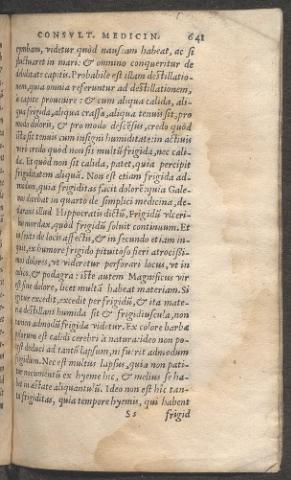 CONSVLT. MEDICIN. 641
cymbam, videtur quòd nauseam habeat, ac si
fluctuaret in mari: & omnino conqueritur de
debilitate capitis. Probabile est illam destillatio-
nem, quia omnia referuntur ad destillationem,
à capite prouenire: & cum aliqua calida, ali-
qua frigida, aliqua crassa, aliqua tenuis sit, pro
modo doloris, & pro modo descēsus, credo quòd
sit tenuis cum insigni humiditate: in actu
viri credo quod non sit multū frigida, nec cali-
da. Et quòd non sit calida, patet, quia percipit
frigiditatem aliquā. Non est etiam frigida ad-
modum, quia frigiditas facit dolorē: quia Gale-
nus docebat in quarto de simplici medicina, de-
clarans illud Hippocratis dictū, Frigidū vlceri-
bus mordax, quòd frigidū soluit continuum. Et
de locis affectis, & in secundo etiam in-
quit, ex humore frigido pituitoso fieri atrocissi-
mos dolores, vt videretur perforari locus, vt in
colicis, & podagra: iste autem Magnificus vir
est sine dolore, licet multā habeat materiam. Si
igitur excedit, excedit per frigidū, & ita mate-
ria destillans humida sit & frigidiuscula, non
tamen admodū frigida videtur. Ex colore barbæ
est calidi cerebri à natura: ideo non po-
test deduci ad tantū lapsum, ni fuerit admodum
frigidum. Nec est multus lapsus, quia non pati-
tur nocumentū ex hyeme hic, & melius se ha-
bet in æstate aliquantulū. Ideo non est hic tan-
ta frigiditas, quia tempore hyemis, qui habent
Ss frigid